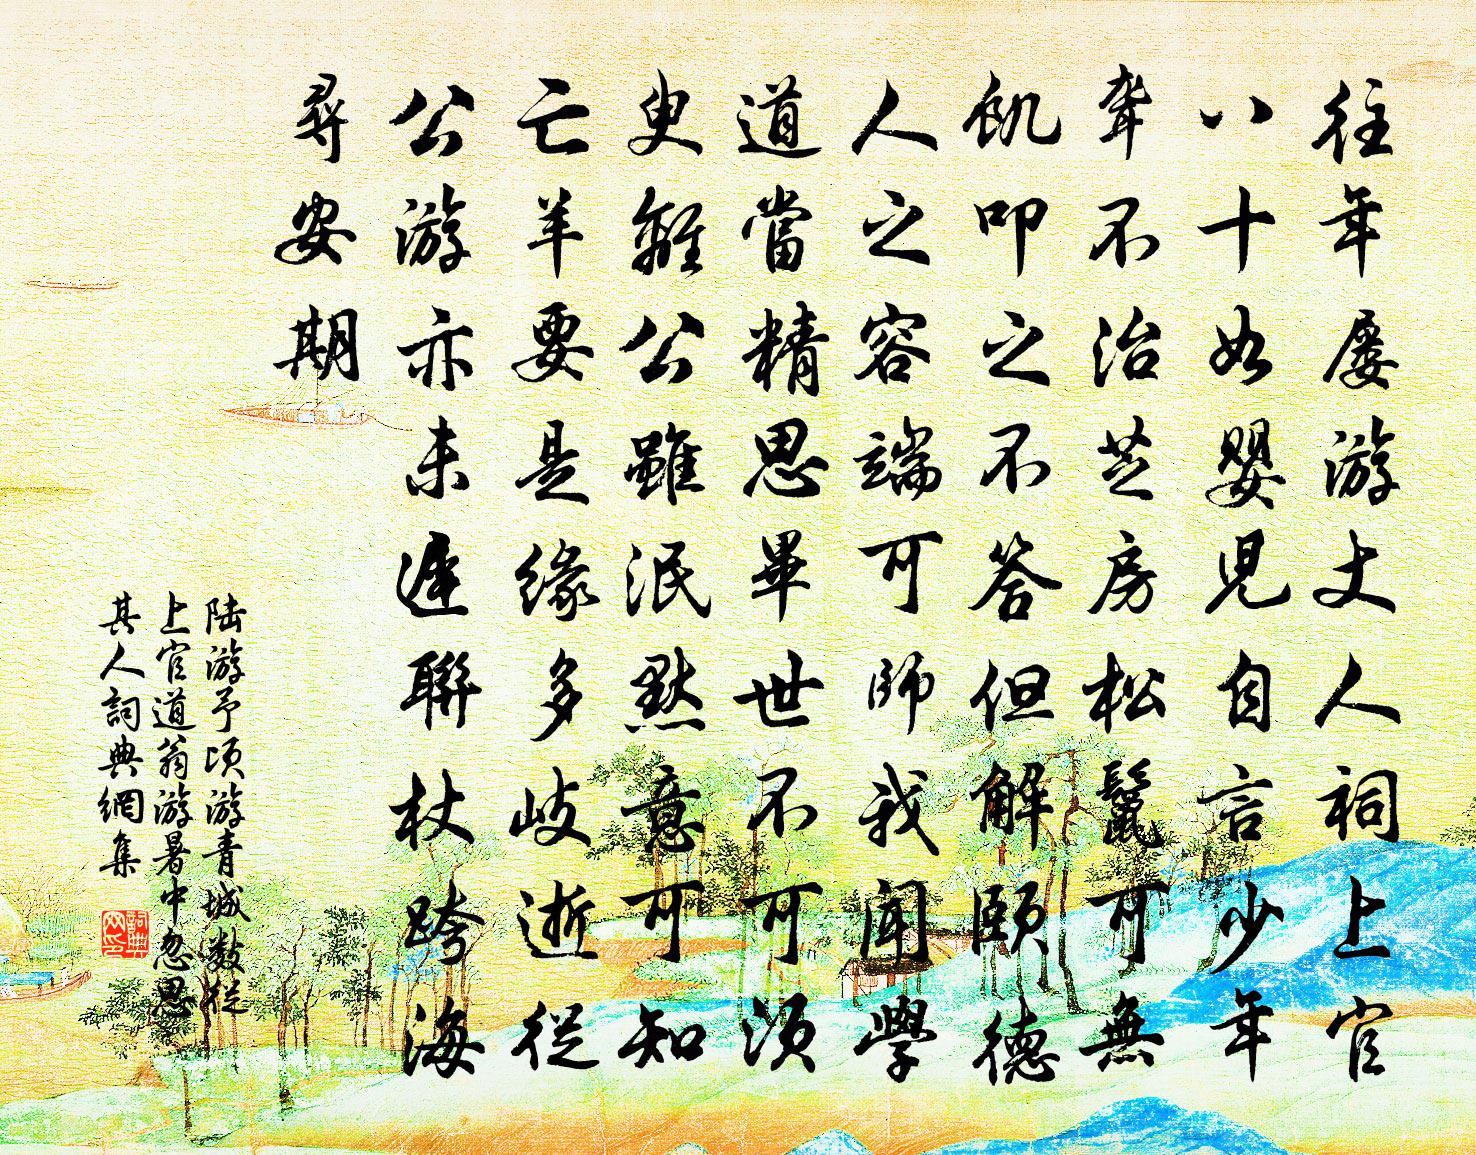 往年屢游丈人祠上官
八十如嬰兒自言少年
聾不治芝房松鬣可無
飢叩之不答但解頤德
人之容端可師我聞學
道當精思畢世不可須
臾離公雖泯默意可知
亡羊要是緣多岐逝從
公游亦未遲聯杖跨海
尋安期
陆游予頃游青城数從
上官道翁游暑中忽思
其人詞典網集